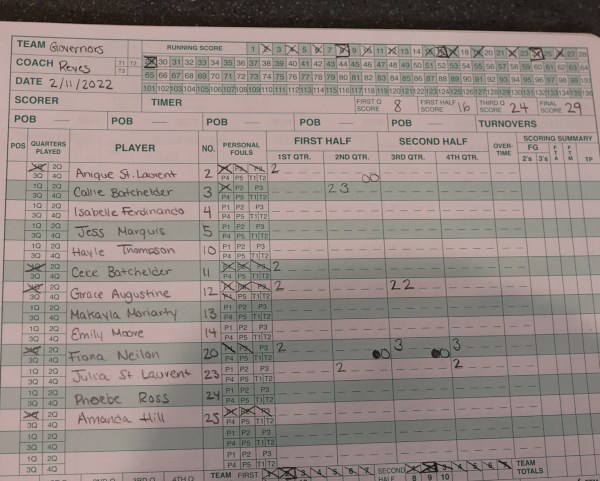 TEAM Governors RUNNING SCORE 1 2 3 4 5 6 7 8 9 10 11 12 13 14 15 16 17 18 19 20 21 22 23 24 25 26 27 28
COACH Reyes T1 T2 T3 29 30 31 32 33 34 35 36 37 38 39 40 41 42 43 44 45 46 47 48 49 50 51 52 53 54 55 56 57 58 59 60 61 62 63 64
65 66 67 68 69 70 71 72 73 74 75 76 77 78 79 80 81 82 83 84 85 86 87 88 89 90 91 92 93 94 95 96 97 98 99 100
DATE 2/11/2022 101 102 103 104 105 106 107 108 109 110 111 112 113 114 115 116 117 118 119 120 121 122 123 124 125 126 127 128 129 130 131 132 133 134 135 136
SCORER TIMER FIRST Q SCORE 8 FIRST HALF SCORE 16 THIRD Q SCORE 24 FINAL SCORE 29
POB POB POB POB POB TURNOVERS
POS QUARTERS PLAYED PLAYER NO. PERSONAL FOULS FIRST HALF SECOND HALF OVER-TIME SCORING SUMMARY
1ST QTR. 2ND QTR. 3RD QTR. 4TH QTR. FG 2's 3's FTA FTM TP
1Q 2Q 3Q 4Q Anique St. Laurent 2 P1 P2 P3 P4 P5 T1 T2 2
1Q 2Q 3Q 4Q Callie Batchelder 3 P1 P2 P3 P4 P5 T1 T2 2 3
1Q 2Q 3Q 4Q Isabelle Ferdinando 4 P1 P2 P3 P4 P5 T1 T2
1Q 2Q 3Q 4Q Jess Marquis 5 P1 P2 P3 P4 P5 T1 T2
1Q 2Q 3Q 4Q Hayle Thompson 10 P1 P2 P3 P4 P5 T1 T2
1Q 2Q 3Q 4Q Cece Batchelder 11 P1 P2 P3 P4 P5 T1 T2 2
1Q 2Q 3Q 4Q Grace Augustine 12 P1 P2 P3 P4 P5 T1 T2 2 2 2
1Q 2Q 3Q 4Q Makayla Moriarty 13 P1 P2 P3 P4 P5 T1 T2
1Q 2Q 3Q 4Q Emily Moore 14 P1 P2 P3 P4 P5 T1 T2
1Q 2Q 3Q 4Q Fiona Neilan 20 P1 P2 P3 P4 P5 T1 T2 2 3 3
1Q 2Q 3Q 4Q Julia St Laurent 23 P1 P2 P3 P4 P5 T1 T2 2 2
1Q 2Q 3Q 4Q Phoebe Ross 24 P1 P2 P3 P4 P5 T1 T2
1Q 2Q 3Q 4Q Amanda Hill 25 P1 P2 P3 P4 P5 T1 T2
1Q 2Q 3Q 4Q P1 P2 P3 P4 P5 T1 T2
1Q 2Q 3Q 4Q P1 P2 P3 P4 P5 T1 T2
TEAM FIRST 1 2 3 4 5 6 7 SECOND HALF 1 2 3 4 5 6 7 8 9 10 TEAM TOTALS